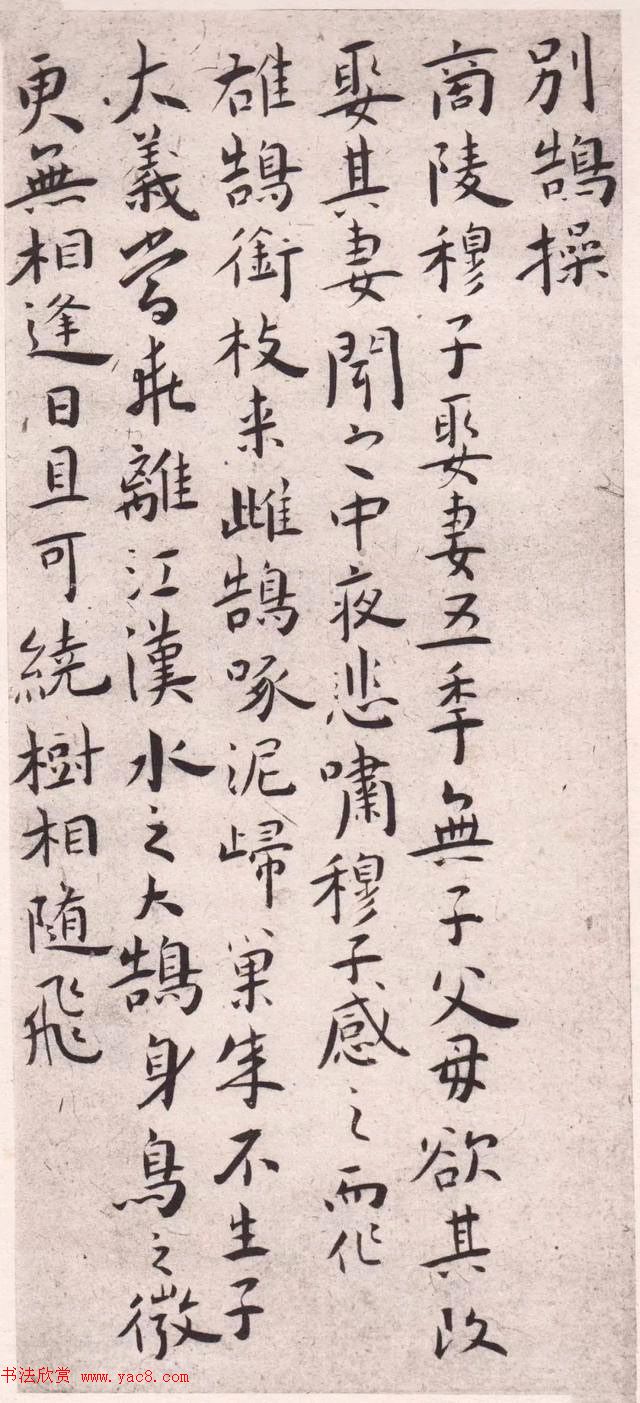 别鵠操
商陵穆子娶妻五秊無子父母欲其改
娶其妻聞之中夜悲嘯穆子感之而作
雄鵠銜枝来雌鵠啄泥歸巢成不生子
大義當乖離江漢水之大鵠身鳥之微
更無相逢日且可繞樹相隨飛
书法欣赏 www.yac8.com